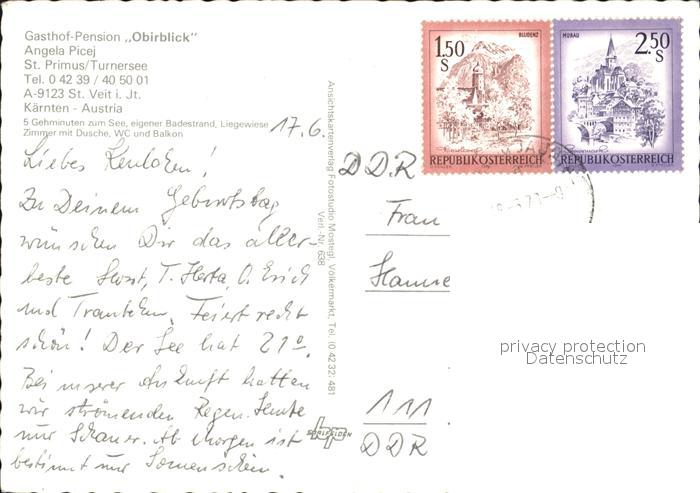 Gasthof-Pension „Obirblick"
Angela Picej
St. Primus/Turnersee
Tel. 0 42 39 / 40 50 01
A-9123 St. Veit i. Jt.
Kärnten - Austria
5 Gehminuten zum See, eigener Badestrand, Liegewiese
Zimmer mit Dusche, WC und Balkon
17.6.
Liebes
Zu Deinem Geburtstag
wünschen Dir das aller-
beste Horst, T. Herta, O. Erich
und Trautchen. Feiert recht
schön! Der See hat 21°.
Bei unserer Ankunft hatten
wir strömenden Regen. Heute
nur Schauer. Ab Morgen ist
bestimmt nur Sonnenschein.
Ansichtskartenverlag Fotostudio Mostegl, Völkermarkt, Tel. (0 42 32) 481
Verl.-Nr. 638
1.50
S
BLUDENZ
REPUBLIK ÖSTERREICH
2.50
S
MURAU
REPUBLIK ÖSTERREICH
DDR
Frau
Hanne
111
DDR
privacy protection
Datenschutz